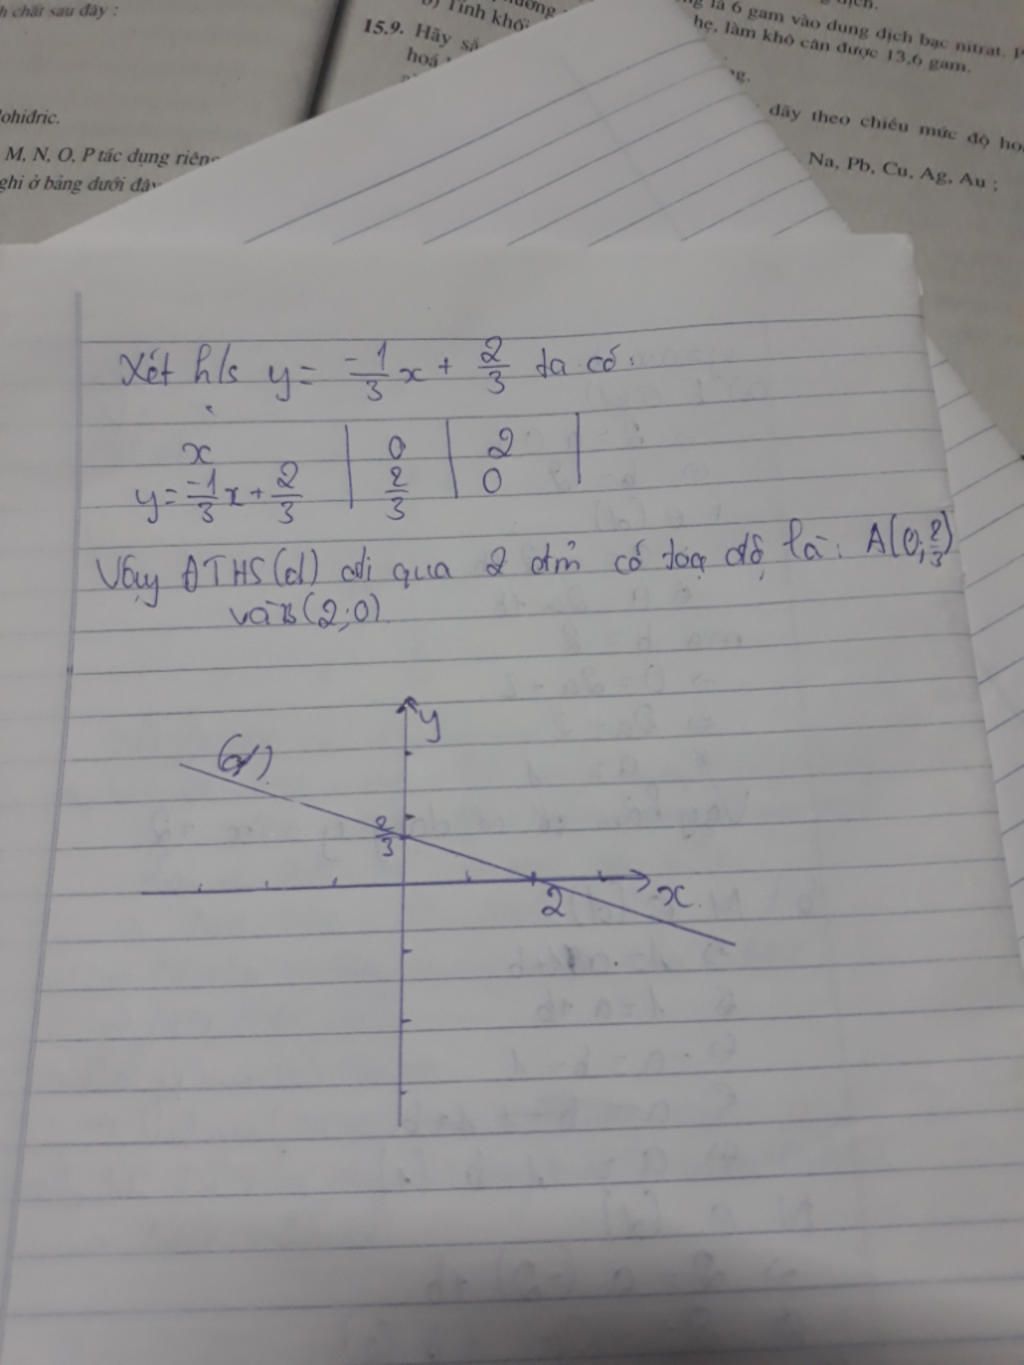 h chất sau đây :
ohiđric.
M, N, O, P tác dụng riêng
ghi ở bảng dưới đây
b) Tính khối
15.9. Hãy sắ
hoá
là 6 gam vào dung dịch bạc nitrat.
hẹ, làm khô cân được 13,6 gam.
dãy theo chiều mức độ ho
Na, Pb, Cu, Ag, Au ;
Xét h/s y = -1/3 x + 2/3 ta có:
x | 0 | 2 |
y = -1/3 x + 2/3 | 2/3 | 0 |
Vậy ĐTHS (d) đi qua 2 điểm có toạ độ là: A(0; 2/3)
và B(2;0)
y
(d)
2/3
2
x